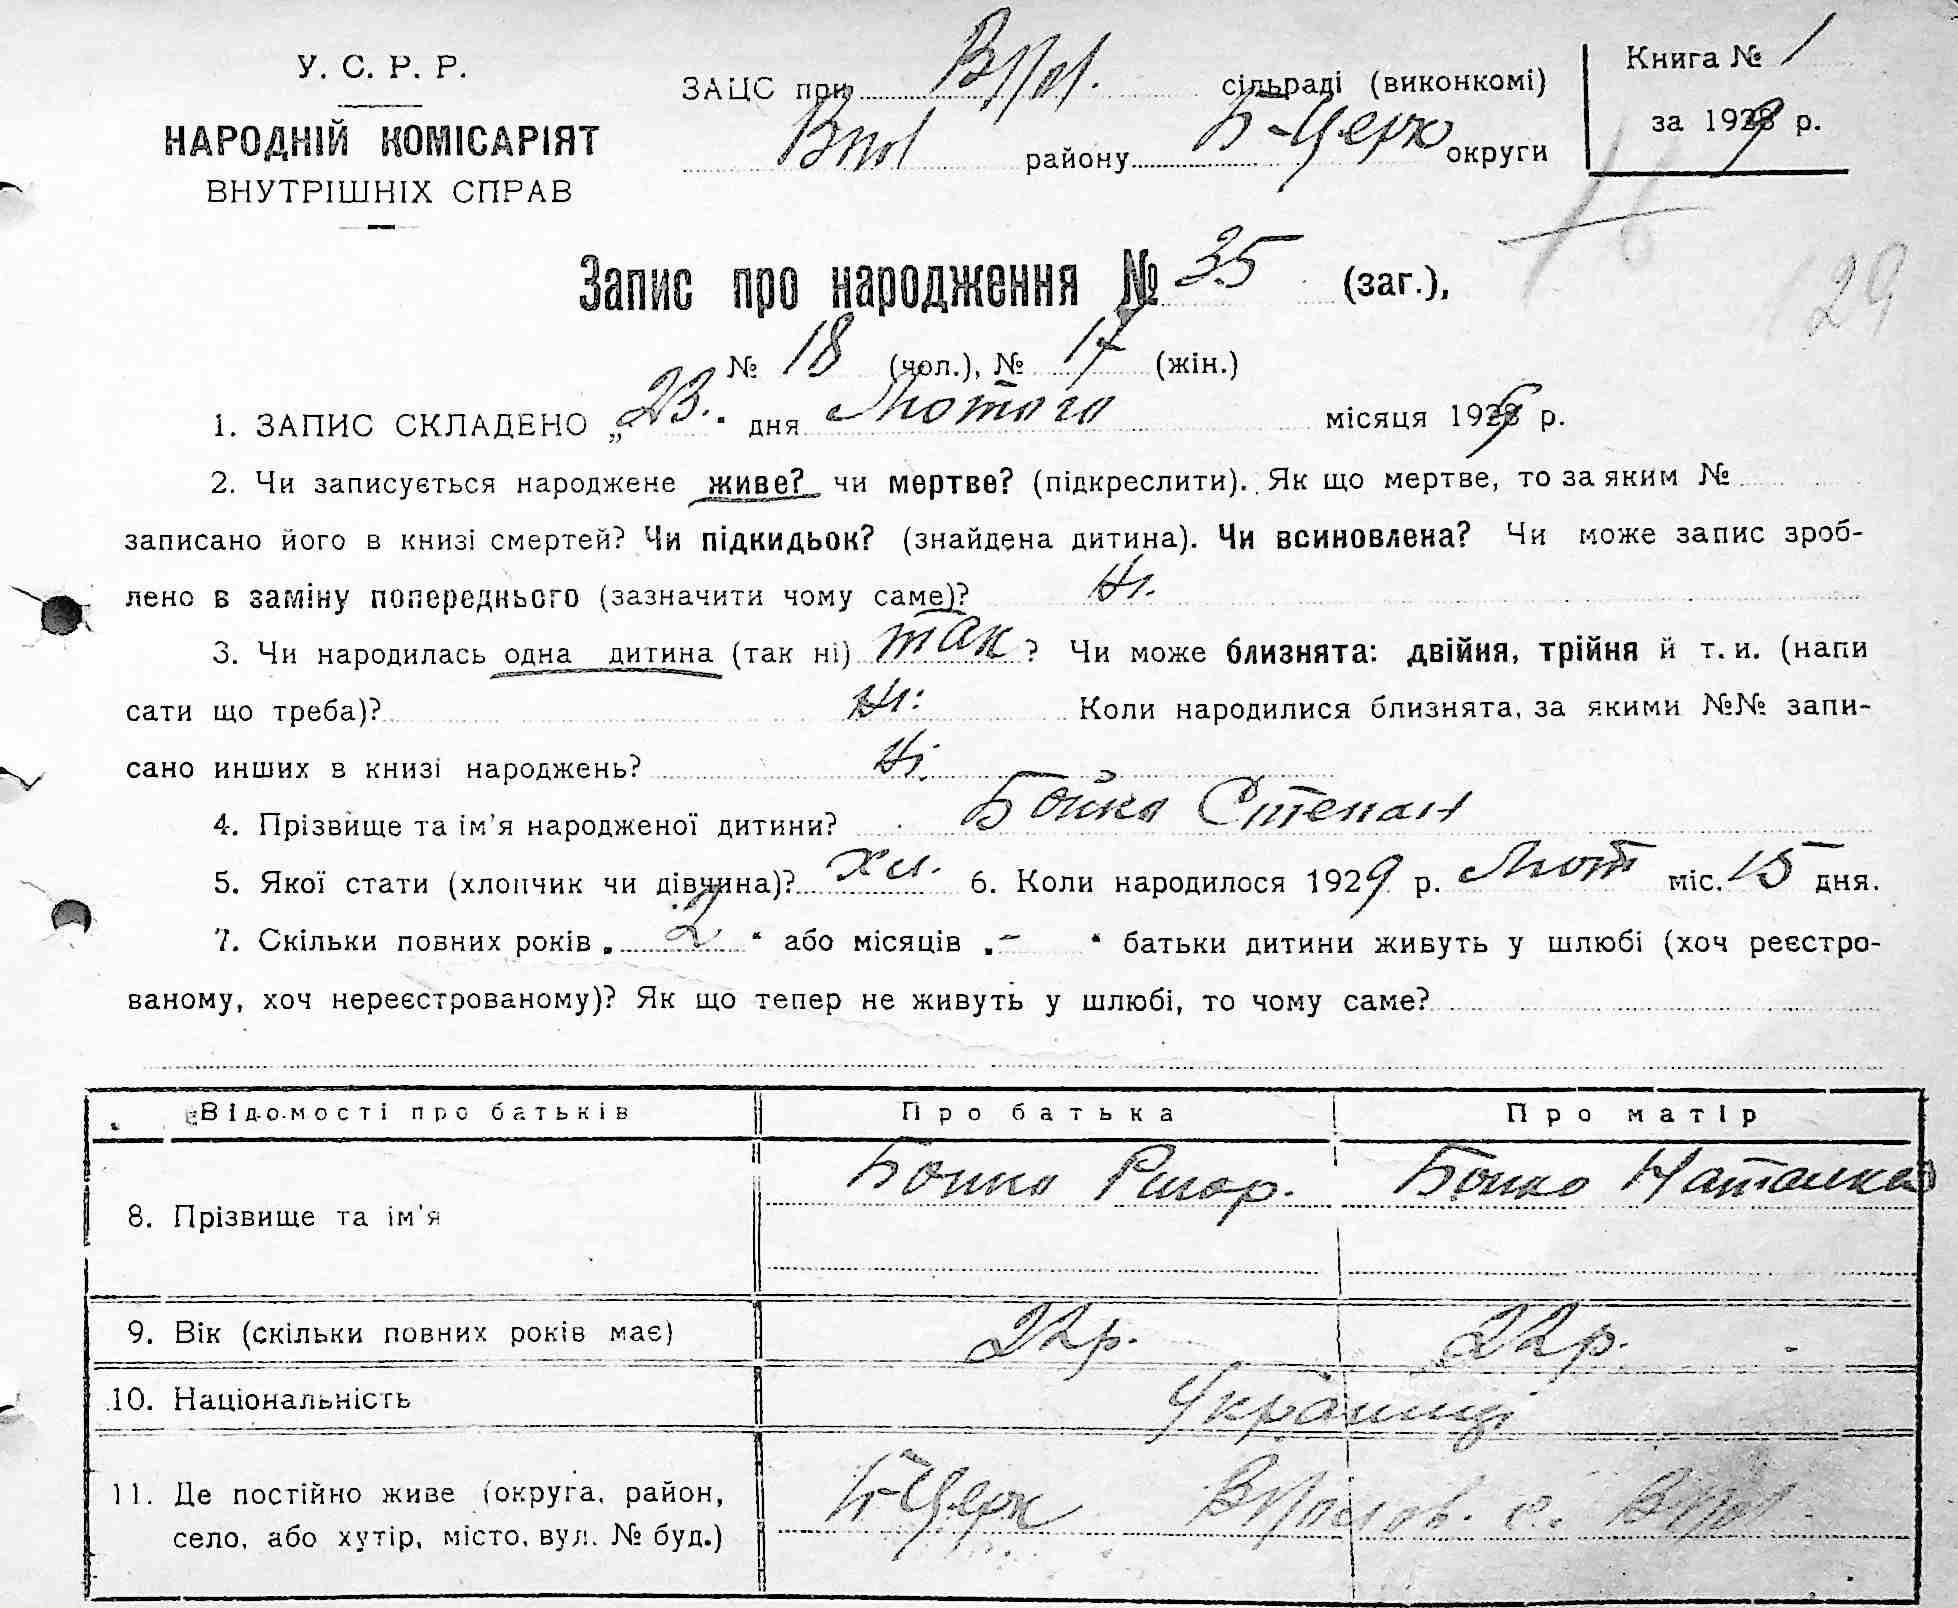 У. С. Р. Р.
НАРОДНІЙ КОМІСАРІЯТ
ВНУТРІШНІХ СПРАВ
ЗАЦС при сільраді (виконкомі)
району Б-Церк округи
Книга № 1
за 1929 р.
Запис про народження № 35 (заг.),
29
№ 18 (чол.), № 17 (жін.)
1. ЗАПИС СКЛАДЕНО „23" дня Лютого місяця 1929 р.
2. Чи записується народжене живе? чи мертве? (підкреслити). Як що мертве, то за яким №
записано його в книзі смертей? Чи підкидьок? (знайдена дитина). Чи всиновлена? Чи може запис зроб-
лено в заміну попереднього (зазначити чому саме)? Ні.
3. Чи народилась одна дитина (так ні) так ? Чи може близнята: двійня, трійня й т. и. (напи
сати що треба)? Ні. Коли народилися близнята, за якими №№ запи-
сано инших в книзі народжень? Ні.
4. Прізвище та ім'я народженої дитини? Бойко Степан
5. Якої стати (хлопчик чи дівчина)? хл. 6. Коли народилося 1929 р. Лют міс. 15 дня.
7. Скільки повних років „ 2 " або місяців „ – " батьки дитини живуть у шлюбі (хоч реєстро-
ваному, хоч нереєстрованому)? Як що тепер не живуть у шлюбі, то чому саме?
Відомості про батьків Про батька Про матір
8. Прізвище та ім'я Бойко Бойко Наталка
9. Вік (скільки повних років має) 22 р. 22 р.
10. Національність Українці
11. Де постійно живе (округа, район, Б-Церк с.
село, або хутір, місто, вул. № буд.)